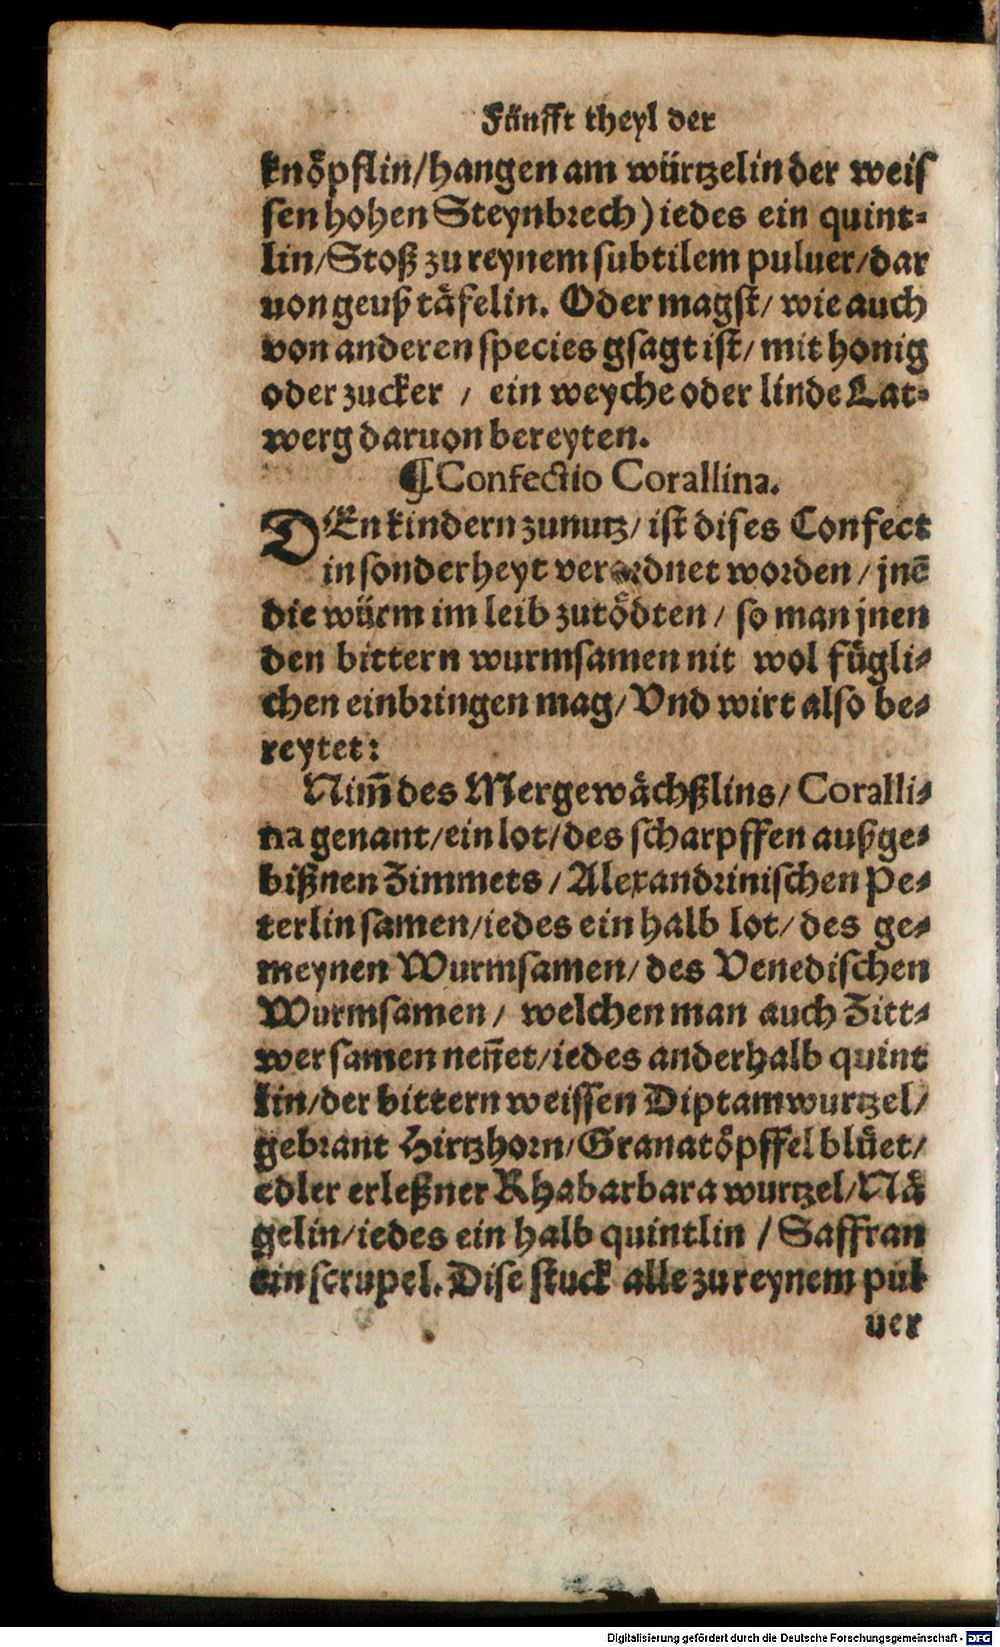 Fünfft theyl der
knöpflin/hangen am würtzelin der weis
sen hohen Steynbrech) iedes ein quint-
lin/Stoß zu reynem subtilem puluer/dar
uon geuß täfelin. Oder magst/ wie auch
von anderen species gsagt ist/ mit honig
oder zucker / ein weyche oder linde Lat-
werg daruon bereyten.
¶Confectio Corallina.
DEn kindern zunutz/ ist dises Confect
in sonderheyt verordnet worden/ jnē
die würm im leib zutödten/ so man jnen
den bittern wurmsamen nit wol fügli-
chen einbringen mag/ Vnd wirt also be-
reytet:
Nim̄ des Mergewächßlins/ Coralli-
na genant/ein lot/des scharpffen außge-
bißnen Zimmets/ Alexandrinischen Pe-
terlin samen/iedes ein halb lot/ des ge-
meynen Wurmsamen/ des Venedischen
Wurmsamen/ welchen man auch Zitt-
wer samen nen̄et/iedes anderhalb quint
lin/der bittern weissen Diptamwurtzel/
gebrant Hirtzhorn/Granatöpffel blüet/
edler erleßner Rhabarbara wurtzel/Nä
gelin/iedes ein halb quintlin / Saffran
ein scrupel. Dise stuck alle zu reynem pul
uer
Digitalisierung gefördert durch die Deutsche Forschungsgemeinschaft - DFG